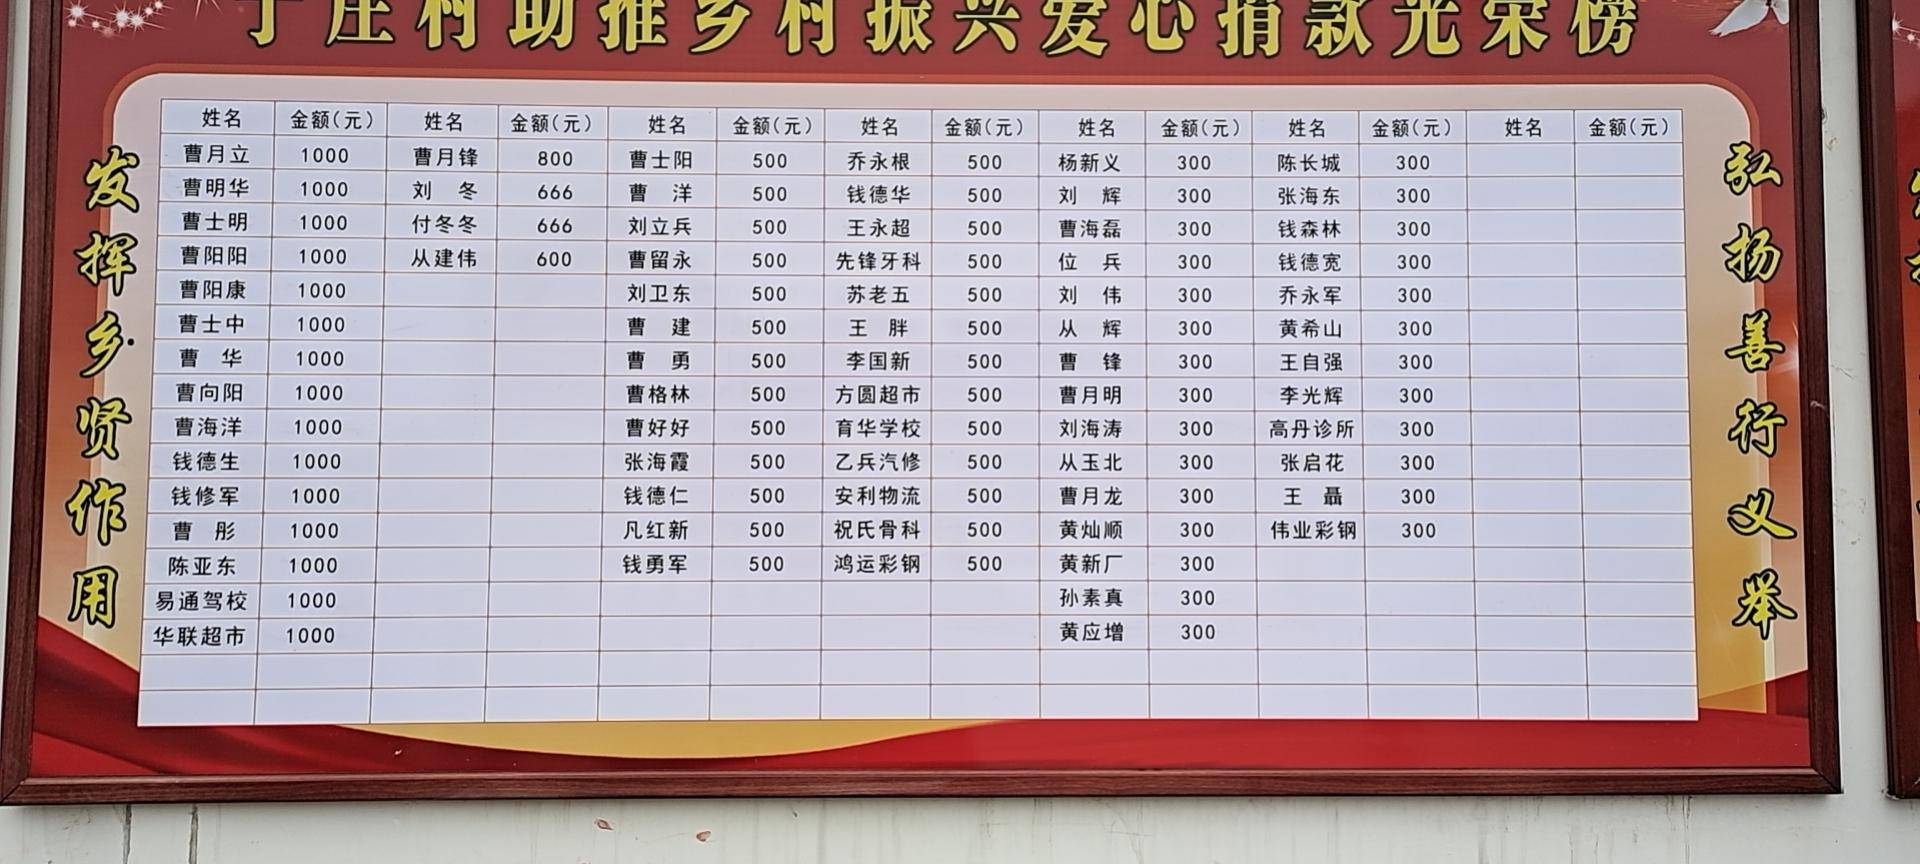 于庄村助推乡村振兴爱心捐款光荣榜
发挥乡贤作用
姓名 金额(元) 姓名 金额(元) 姓名 金额(元) 姓名 金额(元) 姓名 金额(元) 姓名 金额(元) 姓名 金额(元)
曹月立 1000 曹月锋 800 曹士阳 500 乔永根 500 杨新义 300 陈长城 300
曹明华 1000 刘 冬 666 曹 洋 500 钱德华 500 刘 辉 300 张海东 300
曹士明 1000 付冬冬 666 刘立兵 500 王永超 500 曹海磊 300 钱森林 300
曹阳阳 1000 从建伟 600 曹留永 500 先锋牙科 500 位 兵 300 钱德宽 300
曹阳康 1000 刘卫东 500 苏老五 500 刘 伟 300 乔永军 300
曹士中 1000 曹 建 500 王 胖 500 从 辉 300 黄希山 300
曹 华 1000 曹 勇 500 李国新 500 曹 锋 300 王自强 300
曹向阳 1000 曹格林 500 方圆超市 500 曹月明 300 李光辉 300
曹海洋 1000 曹好好 500 育华学校 500 刘海涛 300 高丹诊所 300
钱德生 1000 张海霞 500 乙兵汽修 500 从玉北 300 张启花 300
钱修军 1000 钱德仁 500 安利物流 500 曹月龙 300 王 聶 300
曹 彤 1000 凡红新 500 祝氏骨科 500 黄灿顺 300 伟业彩钢 300
陈亚东 1000 钱勇军 500 鸿运彩钢 500 黄新厂 300
易通驾校 1000 孙素真 300
华联超市 1000 黄应增 300
弘扬善行义举